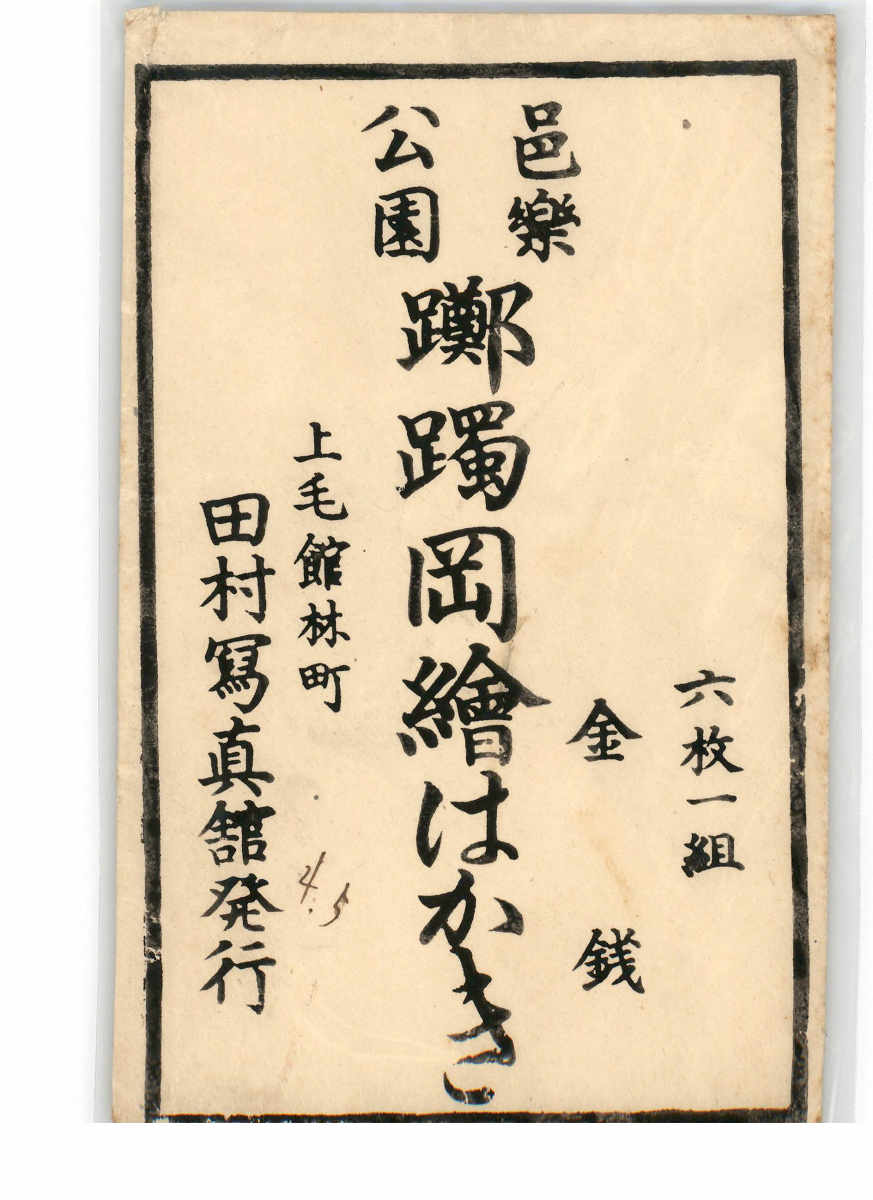 六枚一組
金　銭
邑樂
公園
躑躅岡繪はかき
上毛館林町
4.5
田村寫真舘発行